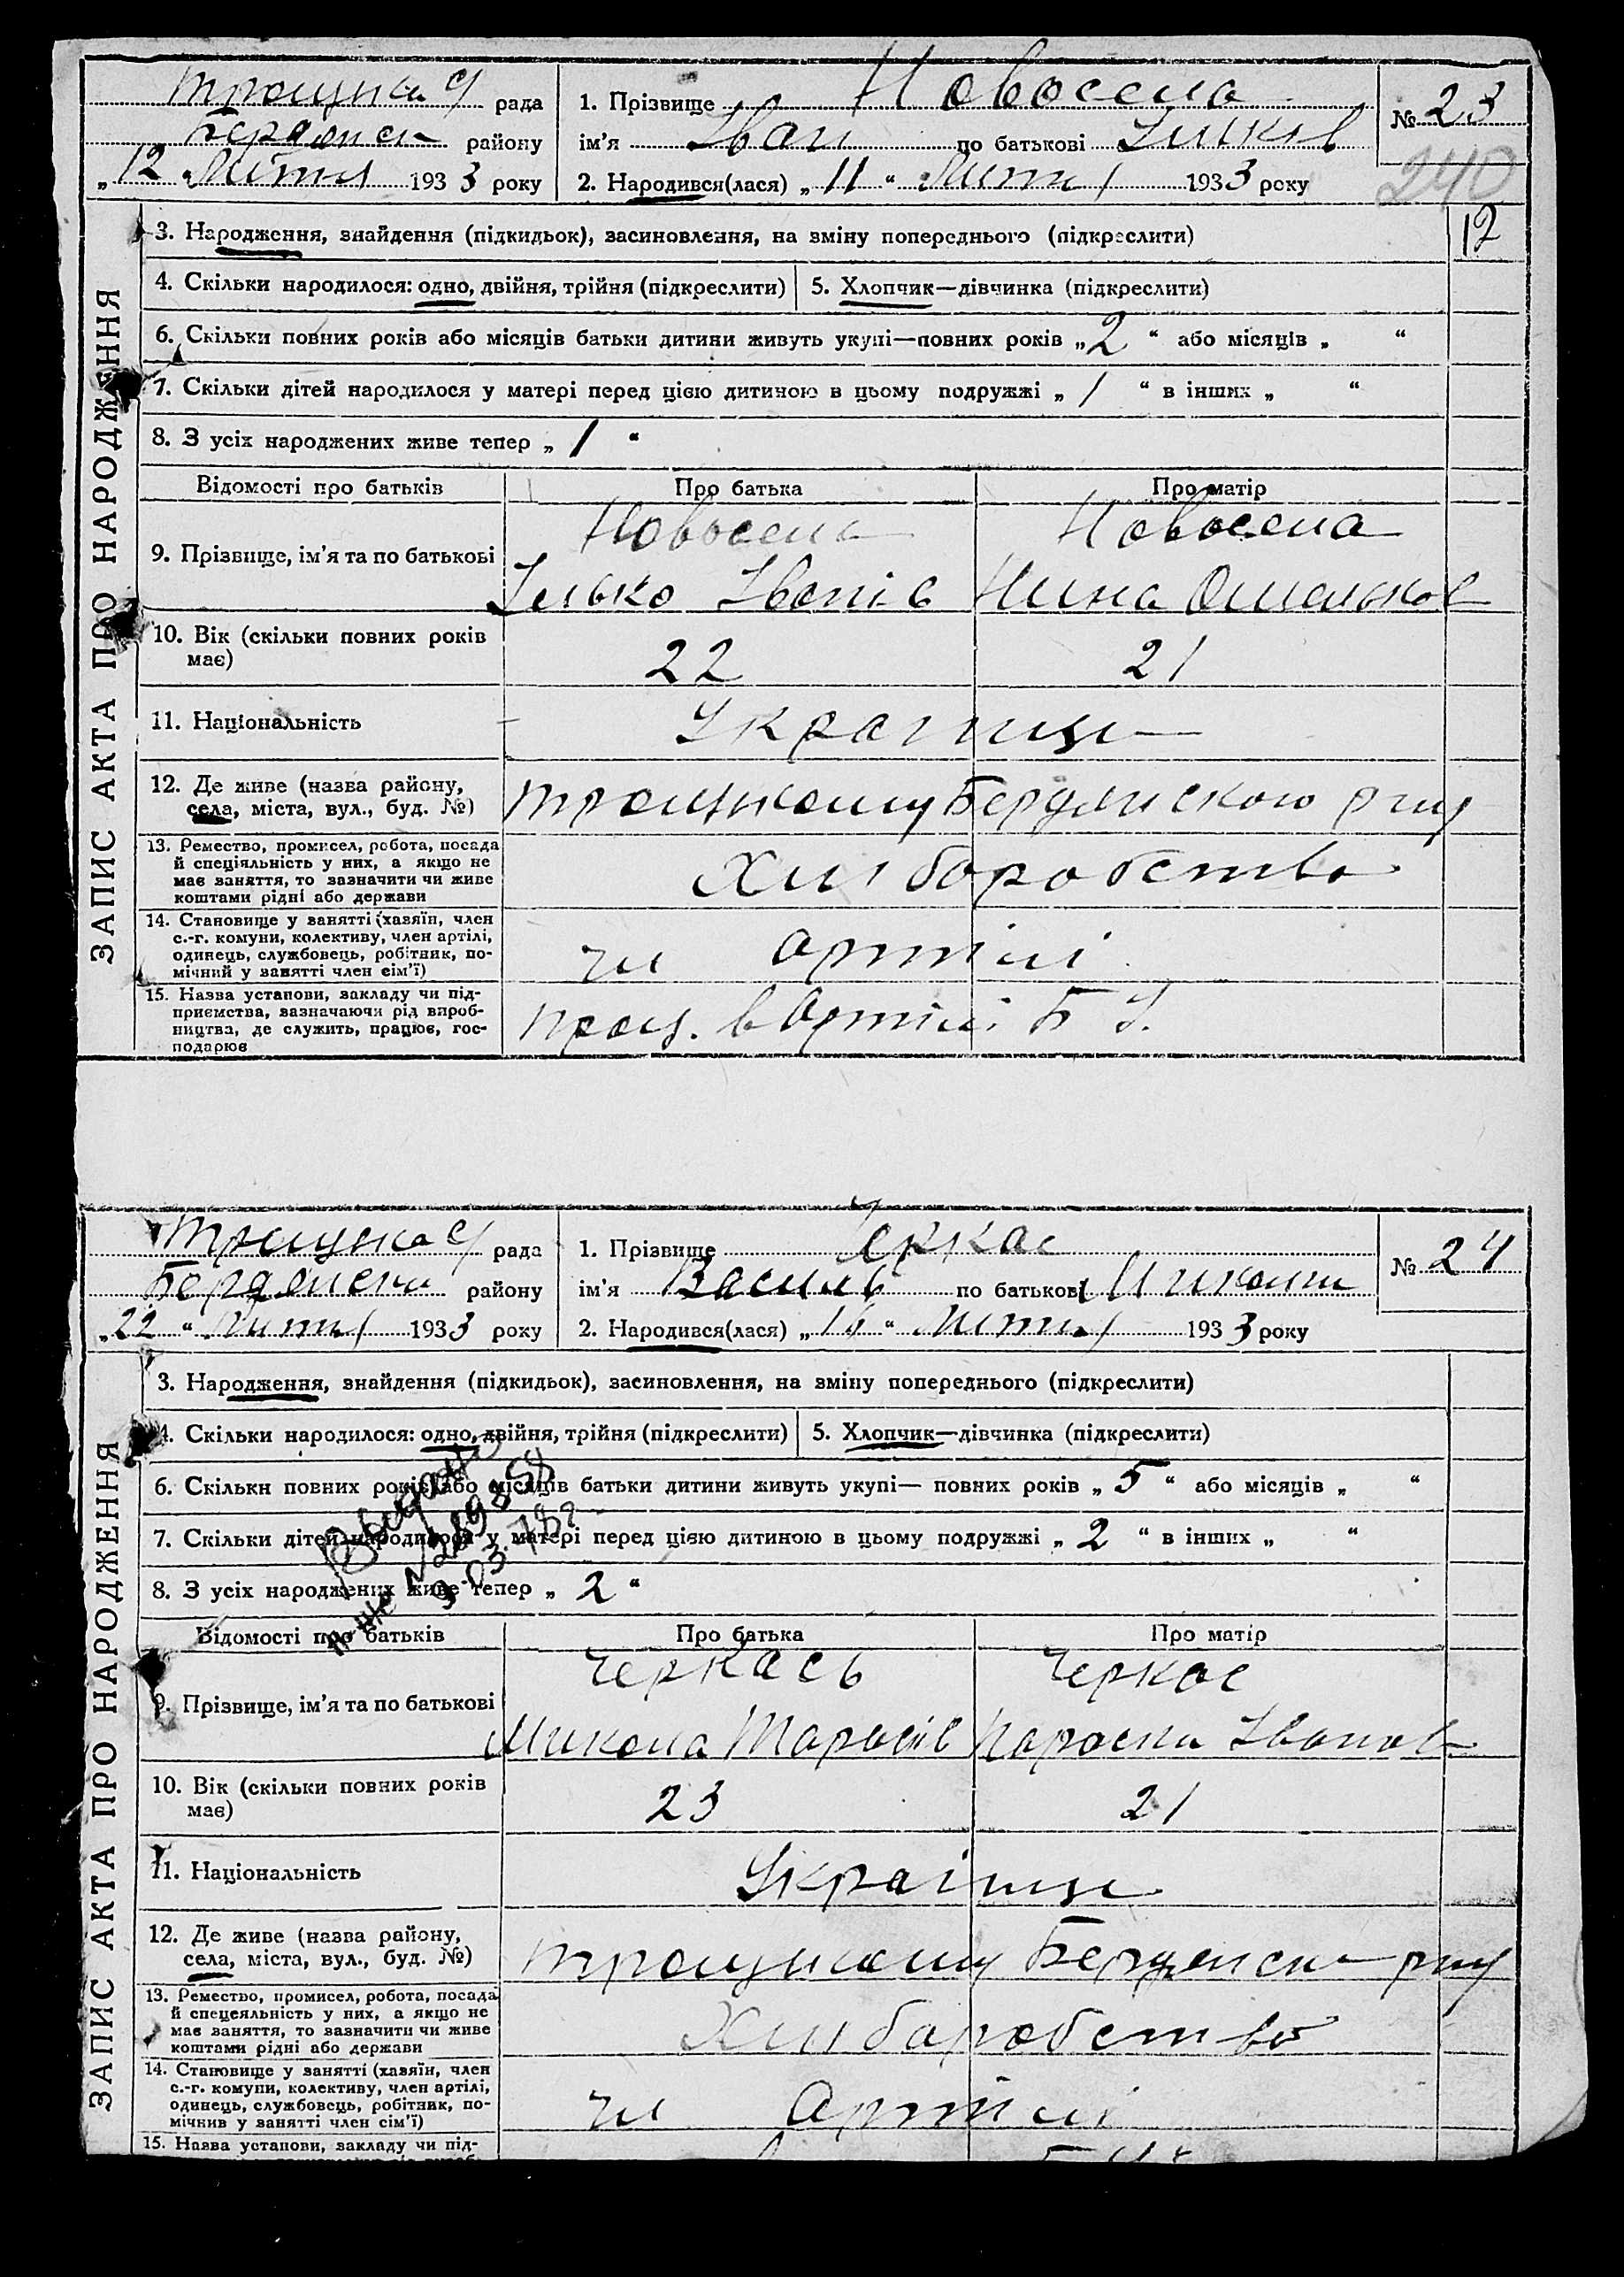 рада
району
„12 “ 1933 року
1. Прізвище Новосела
ім’я Іван по батькові Ільків
2. Народився(лася) „ 11 “ 1933 року
№ 23
240
ЗАПИС АКТА ПРО НАРОДЖЕННЯ
3. Народження, знайдення (підкидьок), засиновлення, на зміну попереднього (підкреслити)
12
4. Скільки народилося: одно, двійня, трійня (підкреслити) 5. Хлопчик—дівчинка (підкреслити)
6. Скільки повних років або місяців батьки дитини живуть укупі—повних років „ 2 “ або місяців „ “
7. Скільки дітей народилося у матері перед цією дитиною в цьому подружжі „ 1 “ в інших „ “
8. З усіх народжених живе тепер „ 1 “
Відомості про батьків Про батька Про матір
Новосела Новосела
9. Прізвище, ім’я та по батькові
Ілько Іванів Нина
10. Вік (скільки повних років
має)
22 21
11. Національність
12. Де живе (назва району,
села, міста, вул., буд. №)
13. Ремество, промисел, робота, посада
й спеціяльність у них, а якщо не
має заняття, то зазначити чи живе
коштами рідні або держави
14. Становище у занятті (хазяїн, член
с.-г. комуни, колективу, член артілі,
одинець, службовець, робітник, по-
мічний у занятті член сім’ї)
чл артілі
15. Назва установи, закладу чи під-
приємства, вазначаючи рід вироб-
ництва, де служить, працює, гос-
подарює
прац. в Артілі Б У.
рада
району
„22 “ 1933 року
1. Прізвище Черкас
ім’я Василь по батькові Миколи
2. Народився(лася) „ “ 1933 року
№ 24
ЗАПИС АКТА ПРО НАРОДЖЕННЯ
3. Народження, знайдення (підкидьок), засиновлення, на зміну попереднього (підкреслити)
4. Скільки народилося: одно, двійня, трійня (підкреслити) 5. Хлопчик—дівчинка (підкреслити)
6. Скільки повних років або місяців батьки дитини живуть укупі— повних років „ 5 “ або місяців „ “
7. Скільки дітей народилося у матері перед цією дитиною в цьому подружжі „ 2 “ в інших „ “
8. З усіх народжених живе тепер „ 2 “
Відомості про батьків Про батька Про матір
Черкась Черкас
9. Прізвище, ім’я та по батькові
Микола Тарасів Параска Іванов
10. Вік (скільки повних років
має)
23 21
11. Національність
Українці
12. Де живе (назва району,
села, міста, вул., буд. №)
13. Ремество, промисел, робота, посада
й спецеяльність у них, а якщо не
має заняття, то зазначити чи живе
коштами рідні або держави
14. Становище у занятті (хазяїн, член
с.-г. комуни, колективу, член артілі,
одинець, службовець, робітник, по-
мічнив у занятті член сім’ї)
чл Артілі
15. Назва установи, закладу чи під-